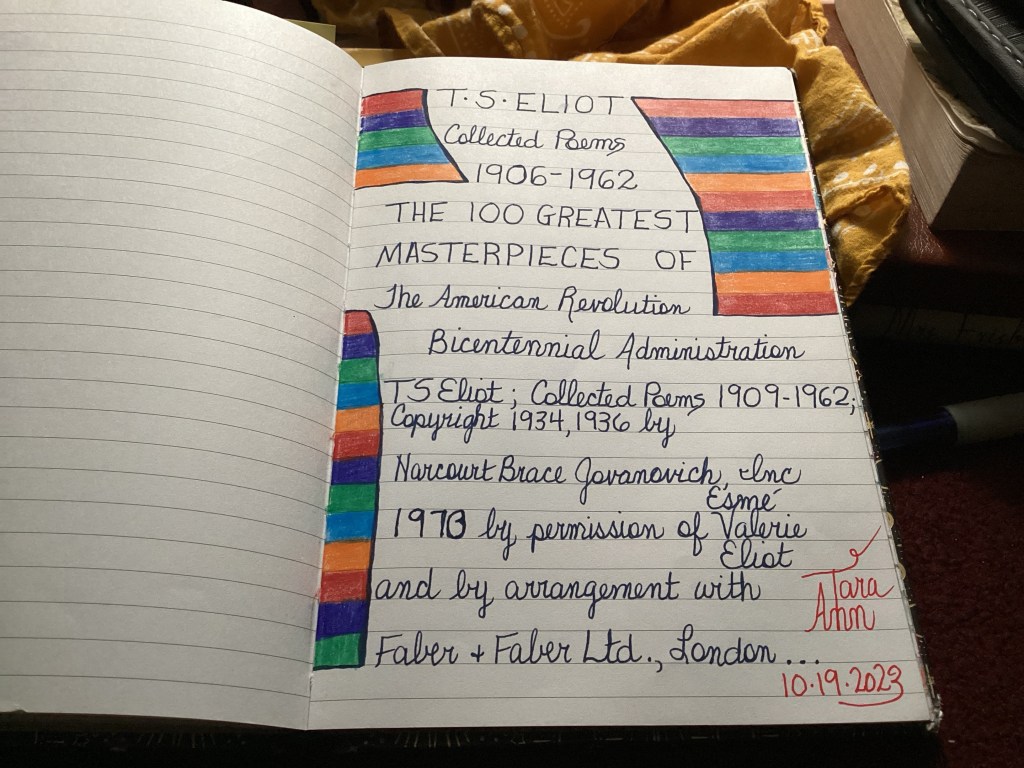 T.S. ELIOT
Collected Poems
1906-1962
THE 100 GREATEST
MASTERPIECES OF
The American Revolution
Bicentennial Administration
TS Eliot; Collected Poems 1909-1962;
Copyright 1934, 1936 by
Harcourt Brace Jovanovich, Inc
Esmé
1970 by permission of Valerie
Eliot
and by arrangement with
Tara
Ann
Faber + Faber Ltd., London ...
10.19.2023